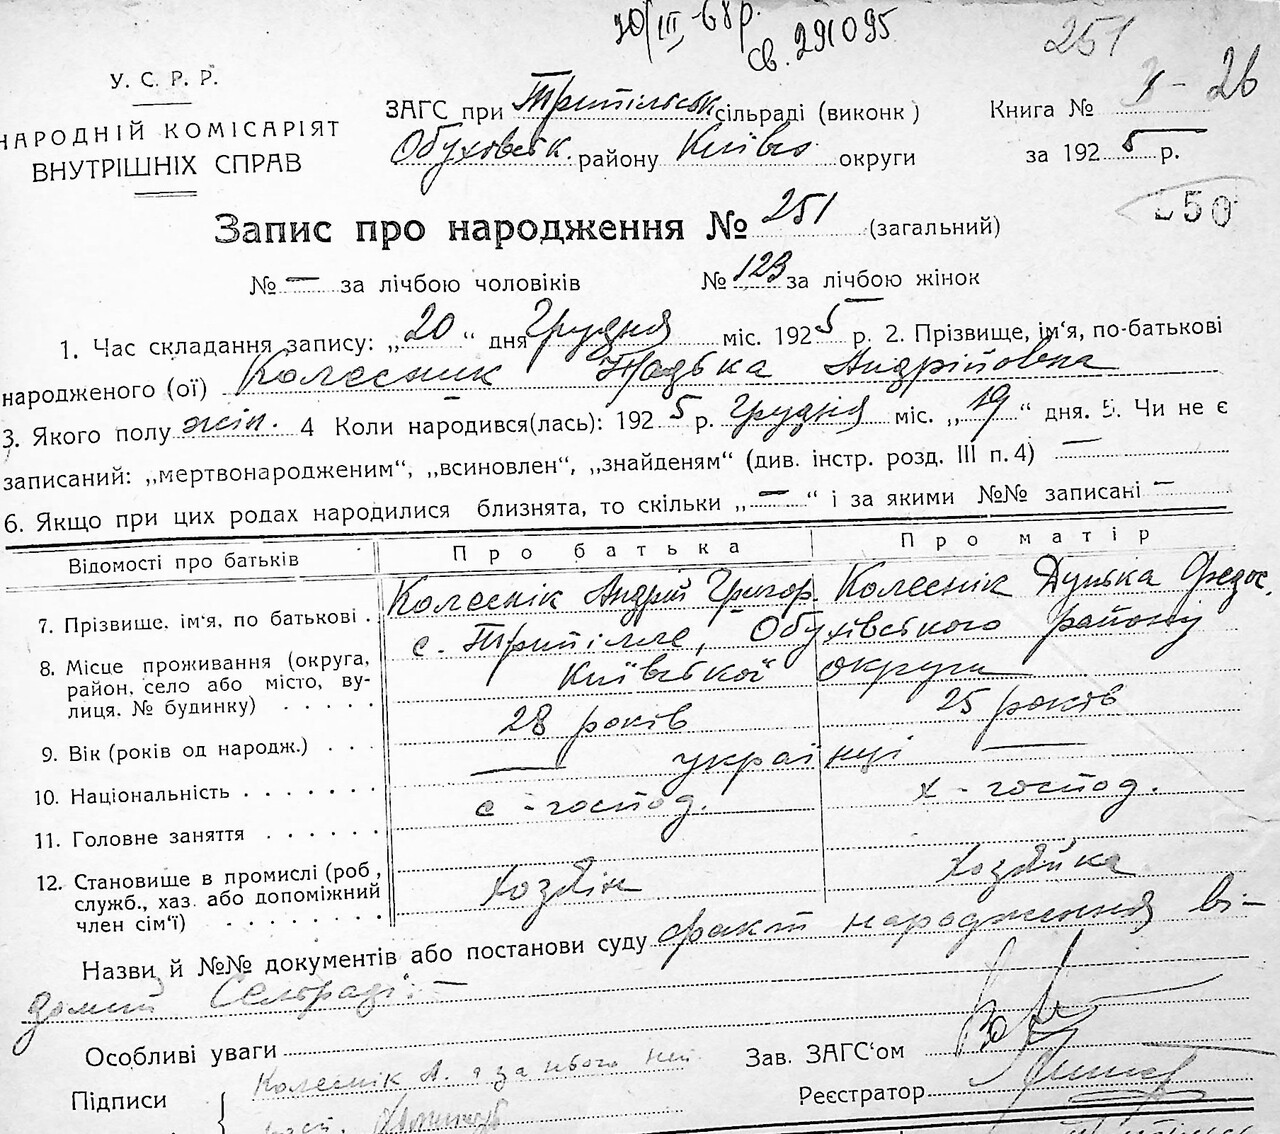 20/III-68р.
св. 291095
251
У. С. Р. Р.
НАРОДНІЙ КОМІСАРІЯТ
ВНУТРІШНІХ СПРАВ
ЗАГС при Трипільськ. сільраді (виконк)
Обухівськ. району Київсо округи
Книга № - 26
за 1925 р.
50
Запис про народження № 251 (загальний)
№ — за лічбою чоловіків № 123 за лічбою жінок
1. Час складання запису: „20“ дня Грудня міс. 1925 р. 2. Прізвище, ім'я, по-батькові
народженого (ої) Колесник Надька Андрійовна
3. Якого полу жін. 4 Коли народився(лась): 1925 р. Грудня міс. „19“ дня. 5. Чи не є
записаний: „мертвонародженим“, „всиновлен“, „знайденям“ (див. інстр. розд. III п. 4) —
6. Якщо при цих родах народилися близнята, то скільки „—“ і за якими №№ записані —
Відомості про батьків Про батька Про матір
7. Прізвище. ім'я, по батькові . Колеснік Андрій Григор. Колеснік Дунька Федос.
8. Місце проживання (округа, район, село або місто, вулиця. № будинку) . . . . . с. Трипілле, Обухівського району
Київської округи
9. Вік (років од народж.) . . . 28 років 25 років
10. Національність . . . . . . . — українці —
11. Головне заняття . . . . . . с-господ. х-господ.
12. Становище в промислі (роб, служб., хаз. або допоміжний член сім'ї) . . . . . . . . Хозяїн Хозяйка
Назви й №№ документів або постанови суду факт народження ві-
домий Сельраді. —
Особливі уваги
Зав. ЗАГС'ом
Підписи Колеснік А. а за нього
Реєстратор